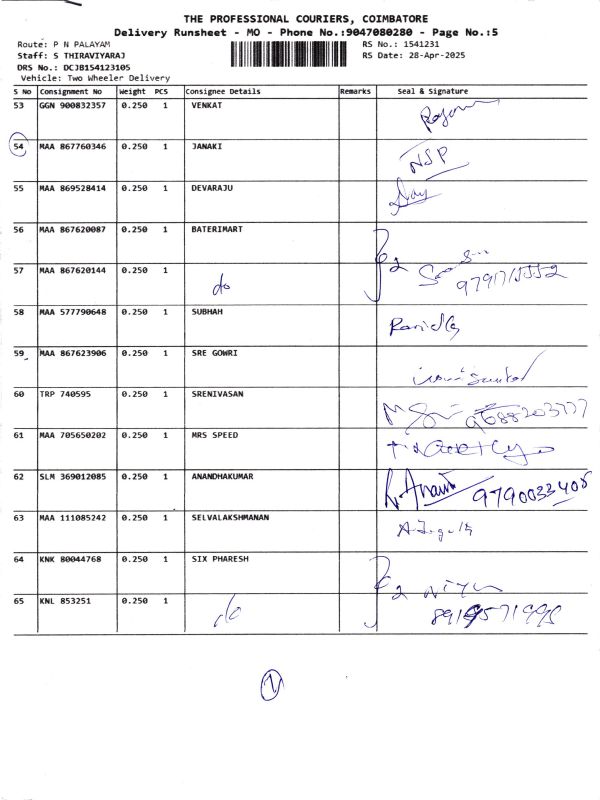 THE PROFESSIONAL COURIERS, COIMBATORE
Delivery Runsheet - MO - Phone No.:9047080280 - Page No.:5
Route: P N PALAYAM RS No.: 1541231
Staff: S THIRAVIYARAJ RS Date: 28-Apr-2025
DRS No.: DCJB154123105
Vehicle: Two Wheeler Delivery
S No Consignment No Weight PCS Consignee Details Remarks Seal & Signature
53 GGN 900832357 0.250 1 VENKAT
54 MAA 867760346 0.250 1 JANAKI NSP
55 MAA 869528414 0.250 1 DEVARAJU
56 MAA 867620087 0.250 1 BATERIMART 2
57 MAA 867620144 0.250 1 do
58 MAA 577790648 0.250 1 SUBHAH
59 MAA 867623906 0.250 1 SRE GOWRI
60 TRP 740595 0.250 1 SRENIVASAN 9688203777
61 MAA 705650202 0.250 1 MRS SPEED
62 SLM 369012085 0.250 1 ANANDHAKUMAR 9790033408
63 MAA 111085242 0.250 1 SELVALAKSHMANAN
64 KNK 80044768 0.250 1 SIX PHARESH 2
65 KNL 853251 0.250 1 do
1